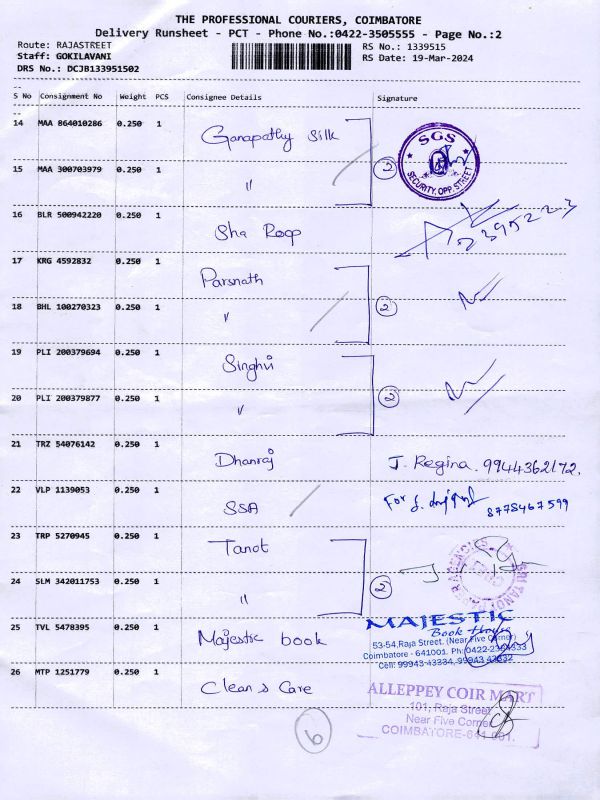 THE PROFESSIONAL COURIERS, COIMBATORE
Delivery Runsheet - PCT - Phone No.:0422-3505555 - Page No.:2
Route: RAJASTREET
RS No.: 1339515
Staff: GOKILAVANI
RS Date: 19-Mar-2024
DRS No.: DCJB133951502
S No Consignment No Weight PCS Consignee Details Signature
14 MAA 864010286 0.250 1 Ganapathy Silk
SGS
SECURITY, OPP. STREET
15 MAA 300703979 0.250 1 〃 2
16 BLR 500942220 0.250 1 Sha Roop
17 KRG 4592832 0.250 1 Parsnath
18 BHL 100270323 0.250 1 〃 2
19 PLI 200379694 0.250 1 Singhvi
20 PLI 200379877 0.250 1 〃 2
21 TRZ 54076142 0.250 1 Dhanraj J. Regina. 9944362172.
22 VLP 1139053 0.250 1 SSA For 8778467599
23 TRP 5270945 0.250 1 Tanot
24 SLM 342011753 0.250 1 〃 2
25 TVL 5478395 0.250 1 Majestic book
MAJESTIC
Book House
53-54, Raja Street. (Near Five Corner)
Coimbatore - 641001. Ph: 0422-
Cell: 99943 43334, 99943
26 MTP 1251779 0.250 1 Clean & Care
ALLEPPEY COIR MART
101, Raja Street
Near Five Corner
COIMBATORE-641 001.
6